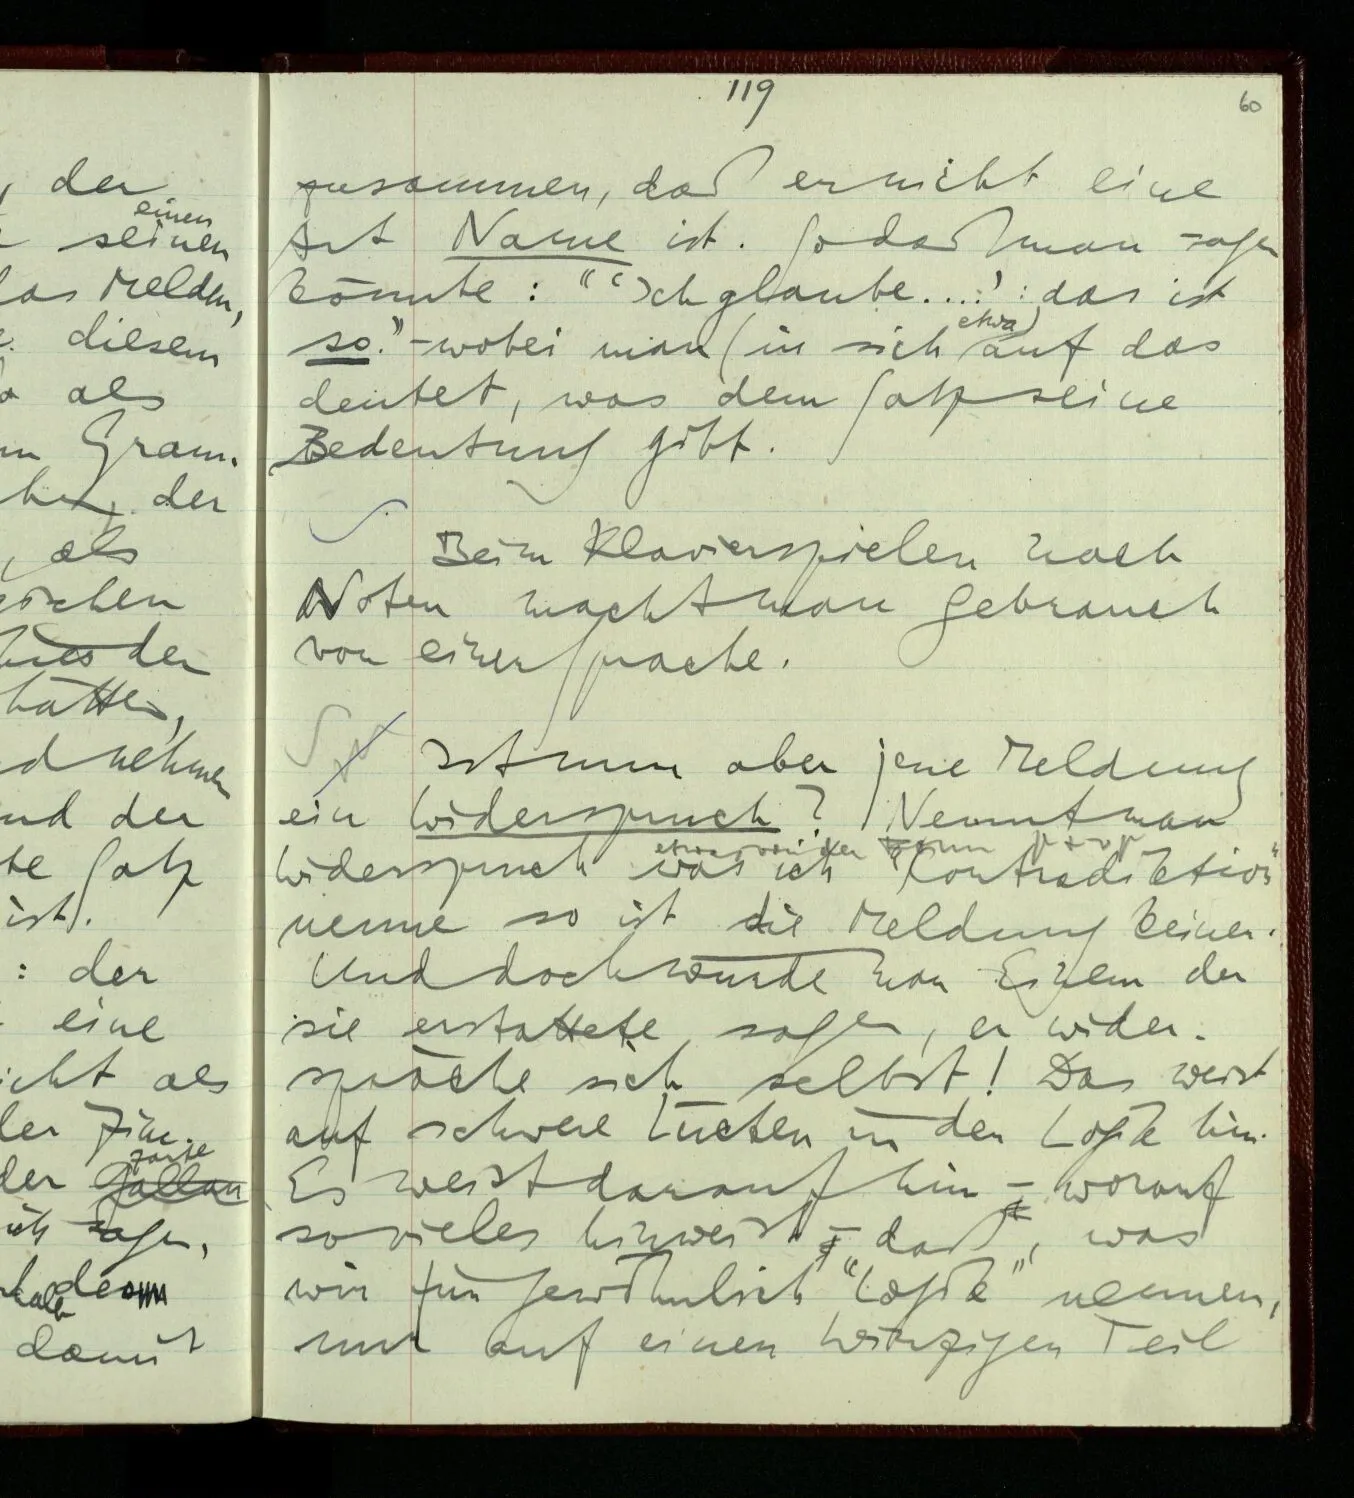 119
60
zusammen, daß er nicht eine
Art Name ist. Sodaß man sagen
könnte: "'Ich glaube....': das ist
so." – wobei man (in sich etwa) auf das
deutet, was dem Satz seine
Bedeutung gibt.
Beim Klavierspielen nach
Noten macht man Gebrauch
von einer Sprache.
Ist nun aber jene Meldung
ein Widerspruch? Nennt man
etwas von der Form p + ~p
Widerspruch was ich "Kontradiktion"
nenne so ist die Meldung keiner.
Und doch würde man Einem der
sie erstattete sagen, er wider-
spräche sich selbst! Das weist
auf schwere Lücken in der Logik hin.
Es weist darauf hin – worauf
sovieles hinweist – daß, was
wir für gewöhnlich "Logik" nennen,
nur auf einen winzigen Teil
der
einen
seinen
das Melden,
diesem
als
Gram-
der
als
der
hätte,
nehmen
und der
Satz
ist).
: der
eine
nicht als
der
ganze
der
ich sagen,
damit